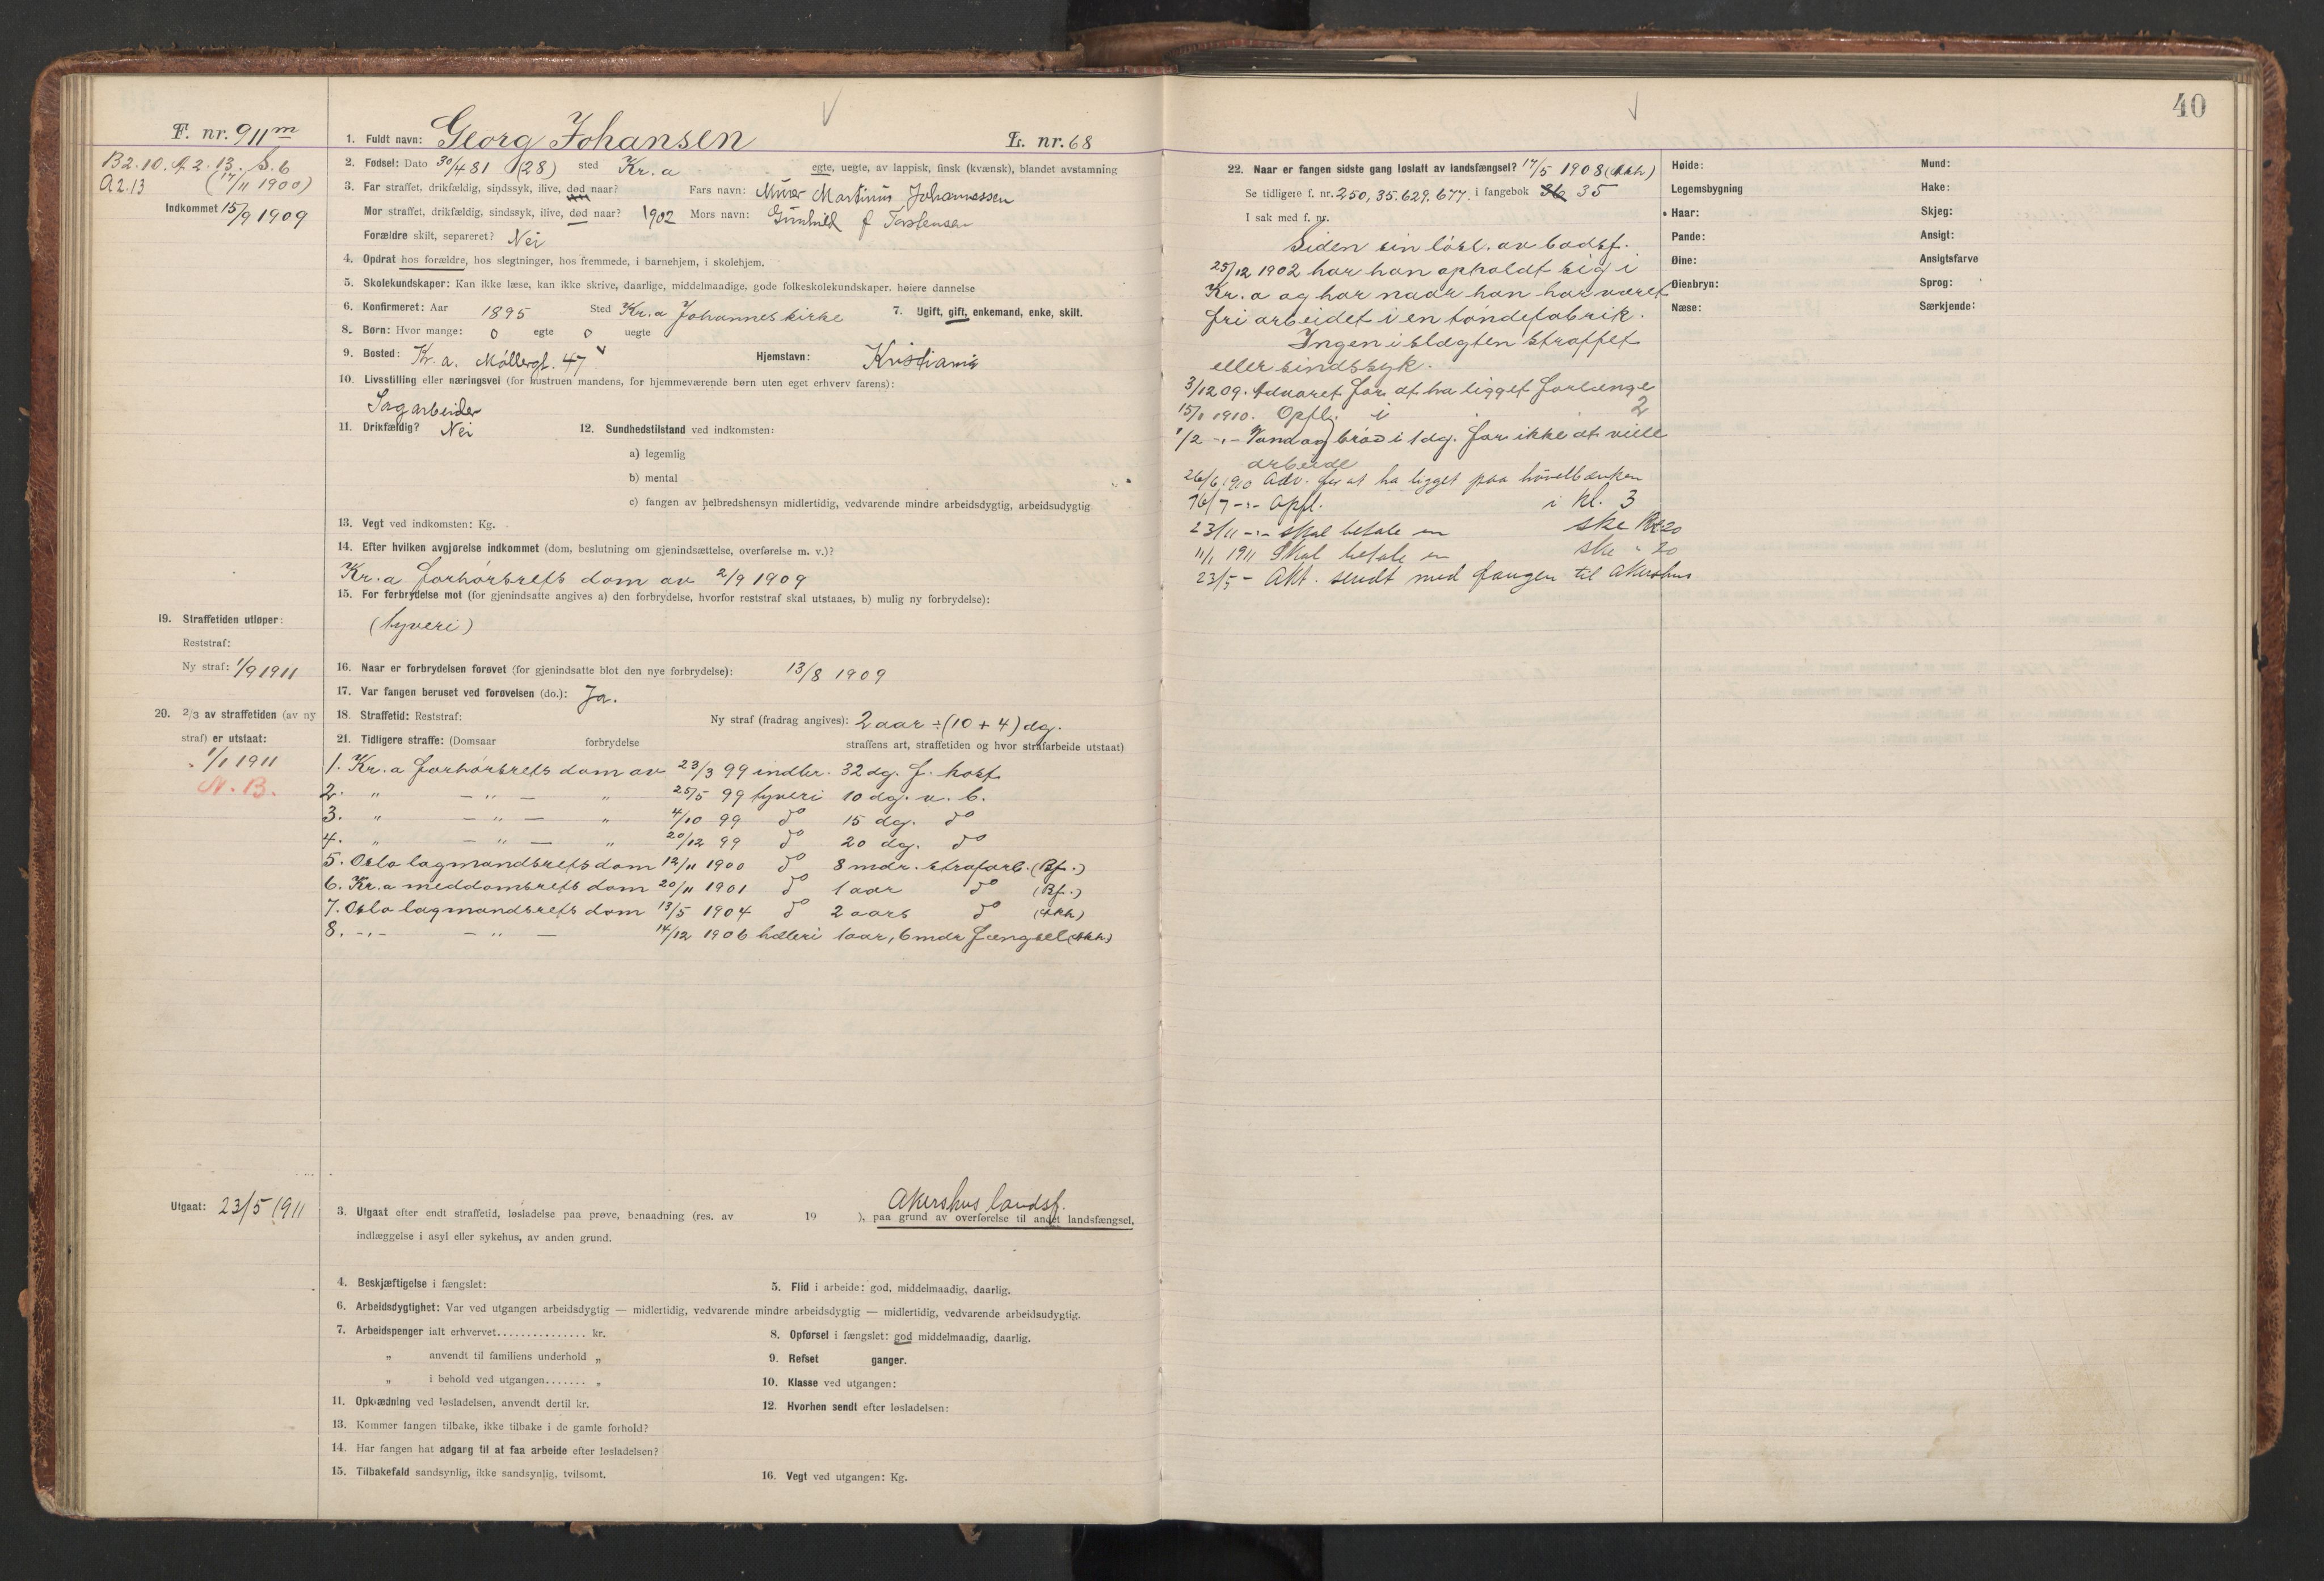 40
F. nr. 911 m
B2.10. A.2.13. S.6
A2.13 (17/11 1900)
Indkommet 15/9 1909
1. Fuldt navn: Georg Johansen L. nr. 68
2. Fødsel: Dato 30/4 81 (28) sted Kr.a egte, uegte, av lappisk, finsk (kvænsk), blandet avstamning
3. Far straffet, drikfældig, sindssyk, ilive, død naar? Fars navn: Murer Martinius Johannessen
Mor straffet, drikfældig, sindssyk, ilive, død naar? 1902 Mors navn: Gunhild f Torstensen
Forældre skilt, separeret? Nei
4. Opdrat hos forældre, hos slegtninger, hos fremmede, i barnehjem, i skolehjem.
5. Skolekundskaper: Kan ikke læse, kan ikke skrive, daarlige, middelmaadige, gode folkeskolekundskaper. høiere dannelse
6. Konfirmeret: Aar 1895 Sted Kr.a Johannes kirke 7. Ugift, gift, enkemand, enke, skilt.
8. Børn: Hvor mange: 0 egte 0 uegte
9. Bosted: Kr.a. Møllergt. 47 Hjemstavn: Kristiania
10. Livsstilling eller næringsvei (for hustruen mandens, for hjemmeværende børn uten eget erhverv farens):
Sagarbeider
11. Drikfældig? Nei 12. Sundhedstilstand ved indkomsten:
a) legemlig
b) mental
c) fangen av helbredshensyn midlertidig, vedvarende mindre arbeidsdygtig, arbeidsudygtig
13. Vegt ved indkomsten: Kg.
14. Efter hvilken avgjørelse indkommet (dom, beslutning om gjenindsættelse, overførelse m. v.)?
Kr.a forhørsrets dom av 2/9 1909
15. For forbrydelse mot (for gjenindsatte angives a) den forbrydelse, hvorfor reststraf skal utstaaes, b) mulig ny forbrydelse):
(tyveri)
19. Straffetiden utløper:
Reststraf:
Ny straf: 1/9 1911
16. Naar er forbrydelsen forøvet (for gjenindsatte blot den nye forbrydelse): 13/8 1909
17. Var fangen beruset ved forøvelsen (do.): Ja.
20. 2/3 av straffetiden (av ny
straf) er utstaat:
1/1 1911
N. B.
18. Straffetid: Reststraf: Ny straf (fradrag angives): 2 aar ÷ (10 + 4) dg.
21. Tidligere straffe: (Domsaar forbrydelse straffens art, straffetiden og hvor strafarbeide utstaat)
1. Kr.a forhørsrets dom av 23/3 99 indbr. 32 dg. f. kost
2. " — " — " 25/5 99 tyveri 10 dg. v. b.
3. " — " — " 4/10 99 do 15 dg. do
4. " — " — " 20/12 99 do 20 dg. do
5. Oslo lagmandsrets dom 12/11 1900 do 8 mdr. strafarb. (Bf.)
6. Kr.a meddomsrets dom 20/11 1901 do 1 aar do (Bf.)
7. Oslo lagmandsrets dom 13/5 1904 do 2 aars do (Akh)
8. -"- — " — 14/12 1906 hæleri 1 aar, 6 mdr fængsel (Akh)
Utgaat: 23/5 1911
Akershus landsf.
3. Utgaat efter endt straffetid, løsladelse paa prøve, benaadning (res. av 19 ), paa grund av overførelse til andet landsfængsel,
indlæggelse i asyl eller sykehus, av anden grund.
4. Beskjæftigelse i fængslet: 5. Flid i arbeide: god, middelmaadig, daarlig.
6. Arbeidsdygtighet: Var ved utgangen arbeidsdygtig — midlertidig, vedvarende mindre arbeidsdygtig — midlertidig, vedvarende arbeidsudygtig.
7. Arbeidspenger ialt erhvervet............... kr. 8. Opførsel i fængslet: god middelmaadig, daarlig.
" anvendt til familiens underhold " 9. Refset ganger.
" i behold ved utgangen....... " 10. Klasse ved utgangen:
11. Opklædning ved løsladelsen, anvendt dertil kr. 12. Hvorhen sendt efter løsladelsen:
13. Kommer fangen tilbake, ikke tilbake i de gamle forhold?
14. Har fangen hat adgang til at faa arbeide efter løsladelsen?
15. Tilbakefald sandsynlig, ikke sandsynlig, tvilsomt. 16. Vegt ved utgangen: Kg.
22. Naar er fangen sidste gang løslatt av landsfængsel? 17/5 1908 (Akh)
Se tidligere f. nr. 250, 35. 629. 677. i fangebok 35
I sak med f. nr.
Siden sin løsl. av bodsf.
25/12 1902 har han opholdt sig i
Kr.a og har naar han har været
fri arbeidet i en tøndefabrik.
Ingen i slægten straffet
eller sindssyk.
3/12 09. Advaret for at ha ligget forlænge
15/1 1910. Opfl. i 2
1/2 -"- Vand og brød i 1 dg. for ikke at ville
arbeide
26/6 1910 Adv. for at ha ligget paa høvelbænken
16/7 -"- Opfl. i kl. 3
23/11 -"- skal betale en ske kr 20
11/1 1911 Skal betale en ske " 20
23/5 - Akt. sendt med fangen til Akershus
Høide: Mund:
Legemsbygning Hake:
Haar: Skjeg:
Pande: Ansigt:
Øine: Ansigtsfarve
Øienbryn: Sprog:
Næse: Særkjende: